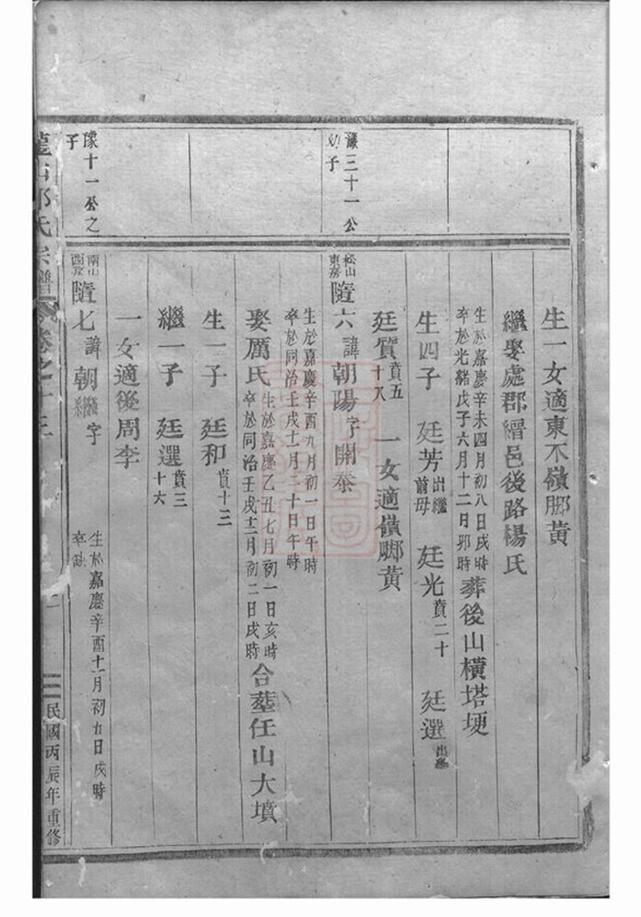 生一女適東不嶺腳黃
繼娶處郡縉邑後路楊氏
生於嘉慶辛未四月初八日戌時
卒於光緒戊子六月十二日卯時
葬後山橫塔埂
生四子 廷芳出繼前母 廷光賁二十 廷選出繼
廷質賁五十八 一女適嶺腳黃
豫三十一公幼子
松山東房
隨六諱朝陽字開泰
生於嘉慶辛酉九月初一日午時
卒於同治壬戌十一月二十日午時
娶厲氏
生於嘉慶乙丑七月初一日亥時
卒於同治壬戌十二月初二日戌時
合塟任山大墳
生一子 廷和賁十三
繼一子 廷選賁三十六
一女適後周李
豫十一公之子
南山西房
隨七諱朝繼字
生於嘉慶辛酉十一月初九日戌時
卒缺
氏宗譜 卷之十三
民國丙辰年重修